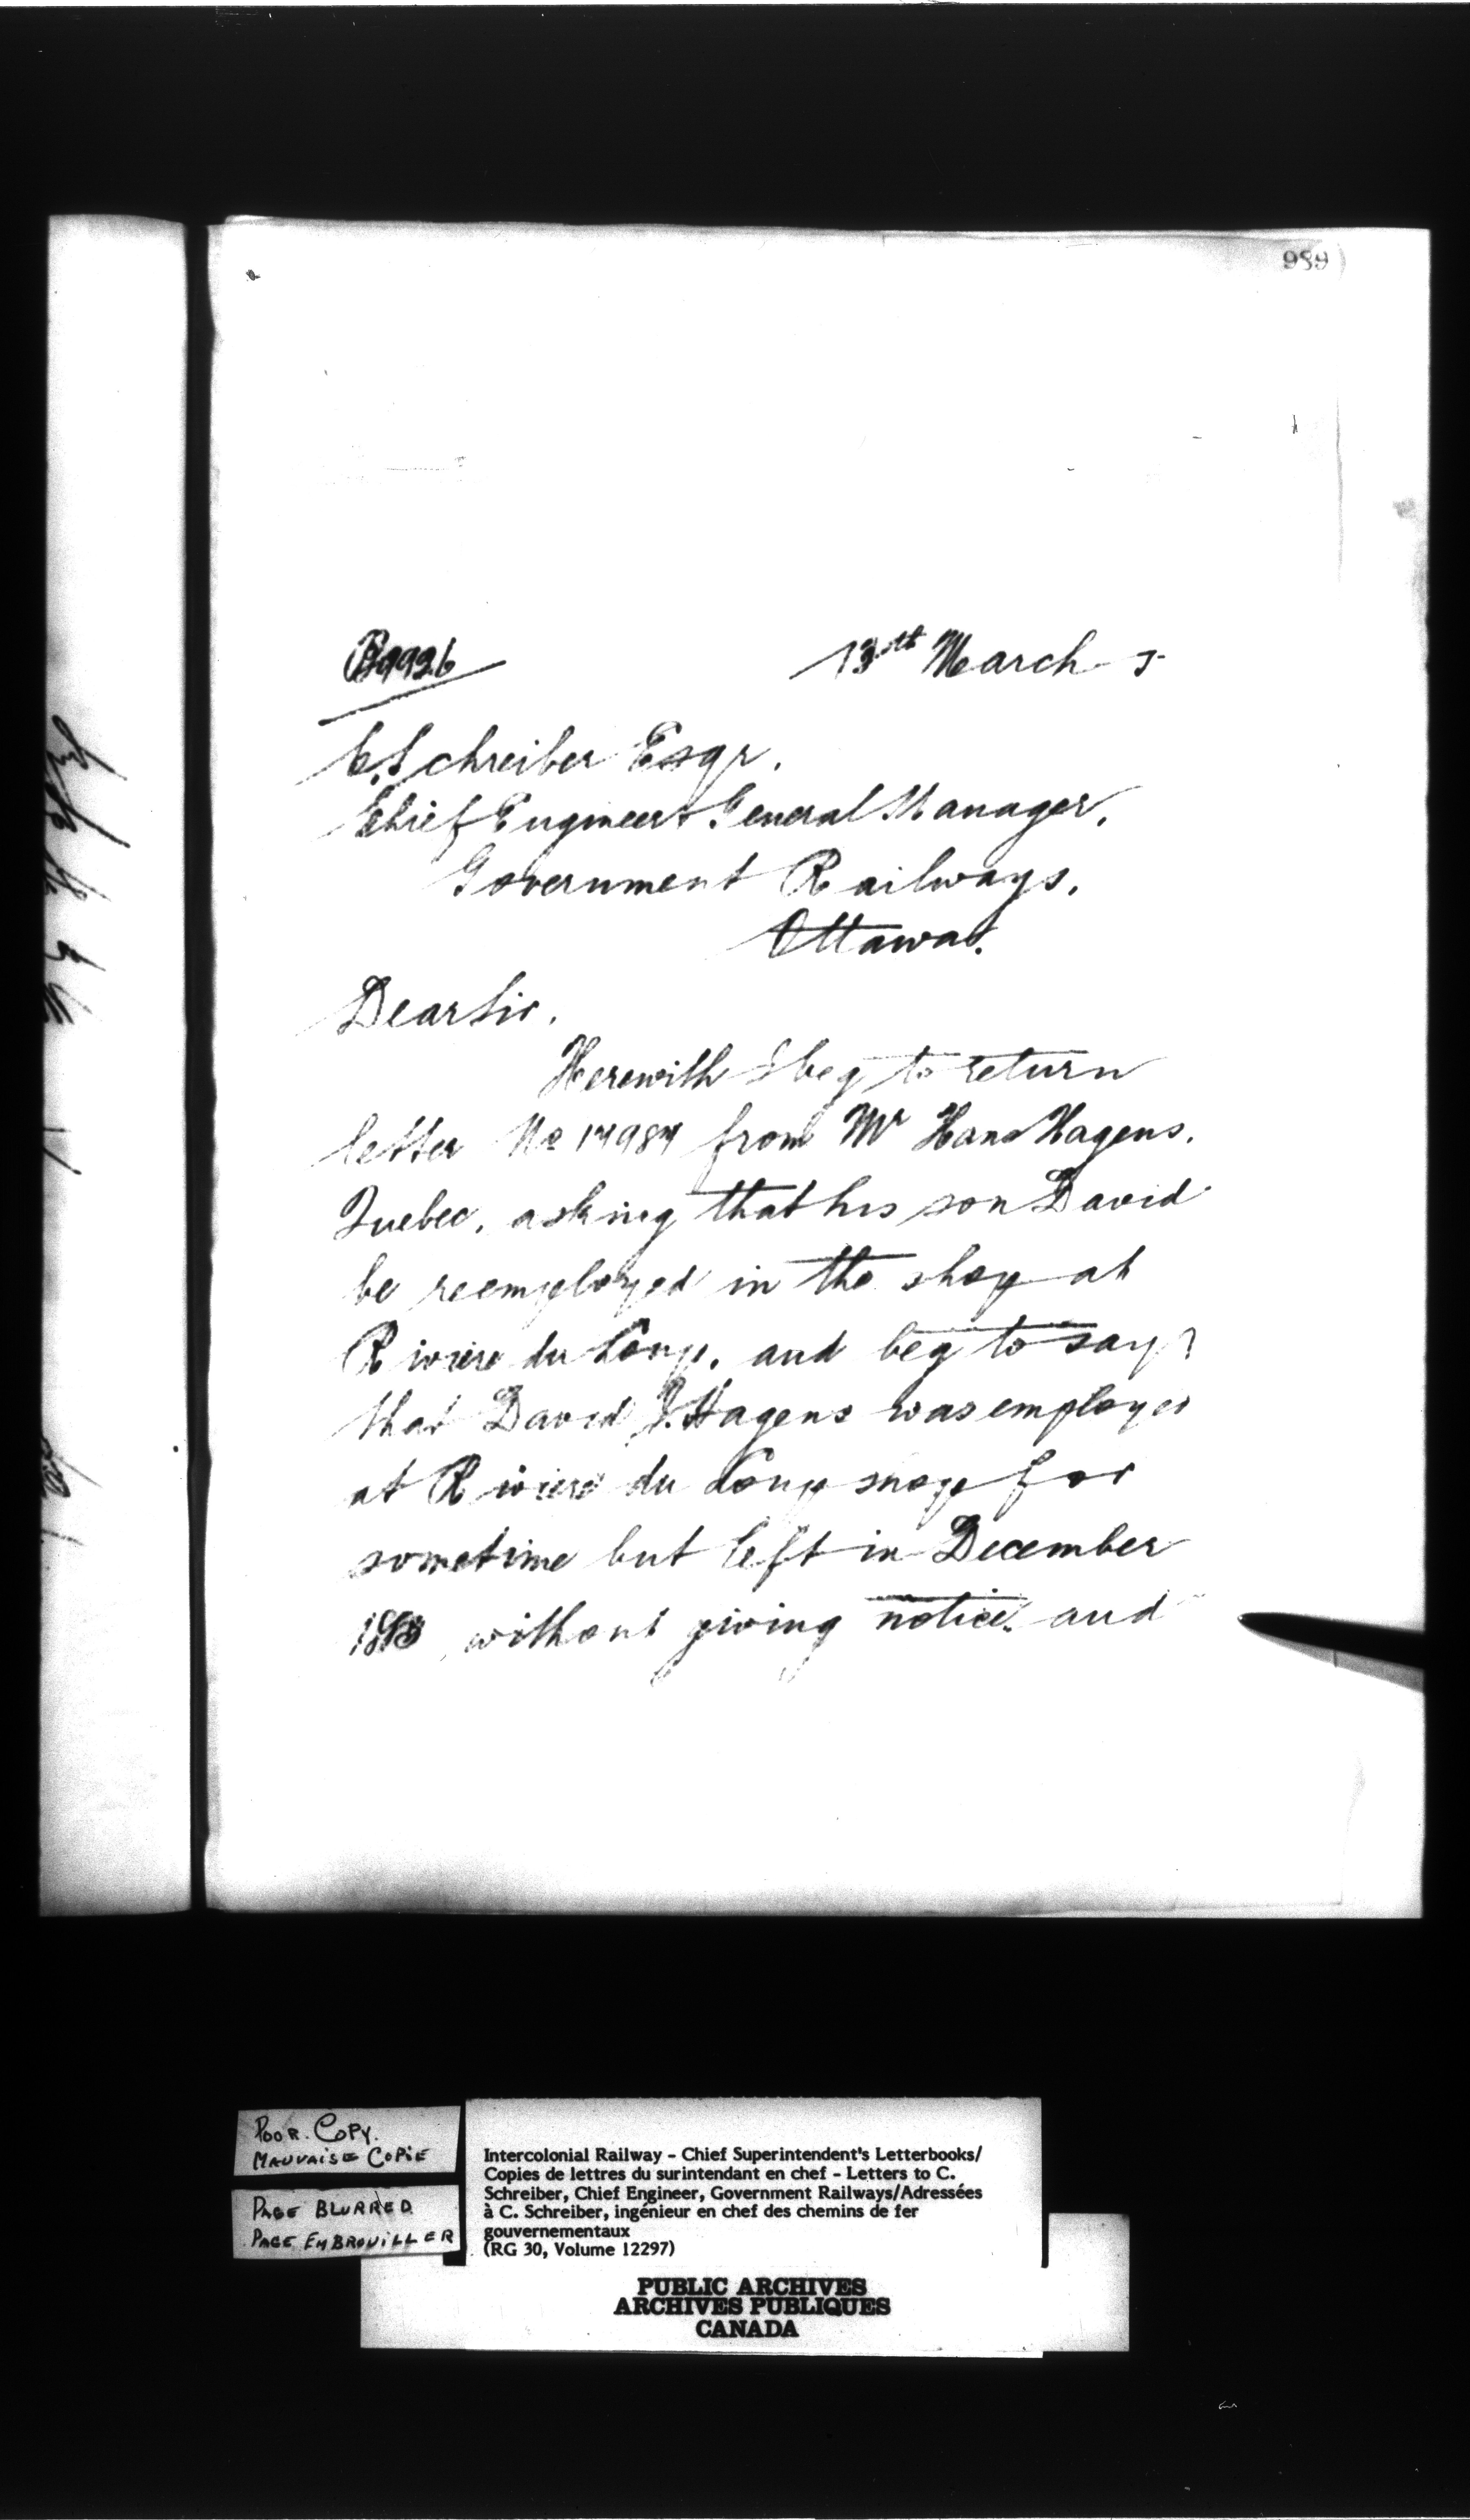 989
13th March 5
C. Schreiber Esqr.
Chief Engineer & General Manager,
Government Railways,
Ottawa.
Dear Sir,
Herewith I beg to return
letter No 17987 from Mr Hans Hagens,
Quebec, asking that his son David
be reemployed in the shop at
Riviere du Loup, and beg to say
that David J. Hagens was employed
at Riviere du Loup shop for
sometime but left in December
without giving notice and
POOR. COPY.
MAUVAISE COPIE
PAGE BLURRED
PAGE EMBROUILLER
Intercolonial Railway - Chief Superintendent's Letterbooks/
Copies de lettres du surintendant en chef - Letters to C.
Schreiber, Chief Engineer, Government Railways/Adressées
à C. Schreiber, ingénieur en chef des chemins de fer
gouvernementaux
(RG 30, Volume 12297)
PUBLIC ARCHIVES
ARCHIVES PUBLIQUES
CANADA